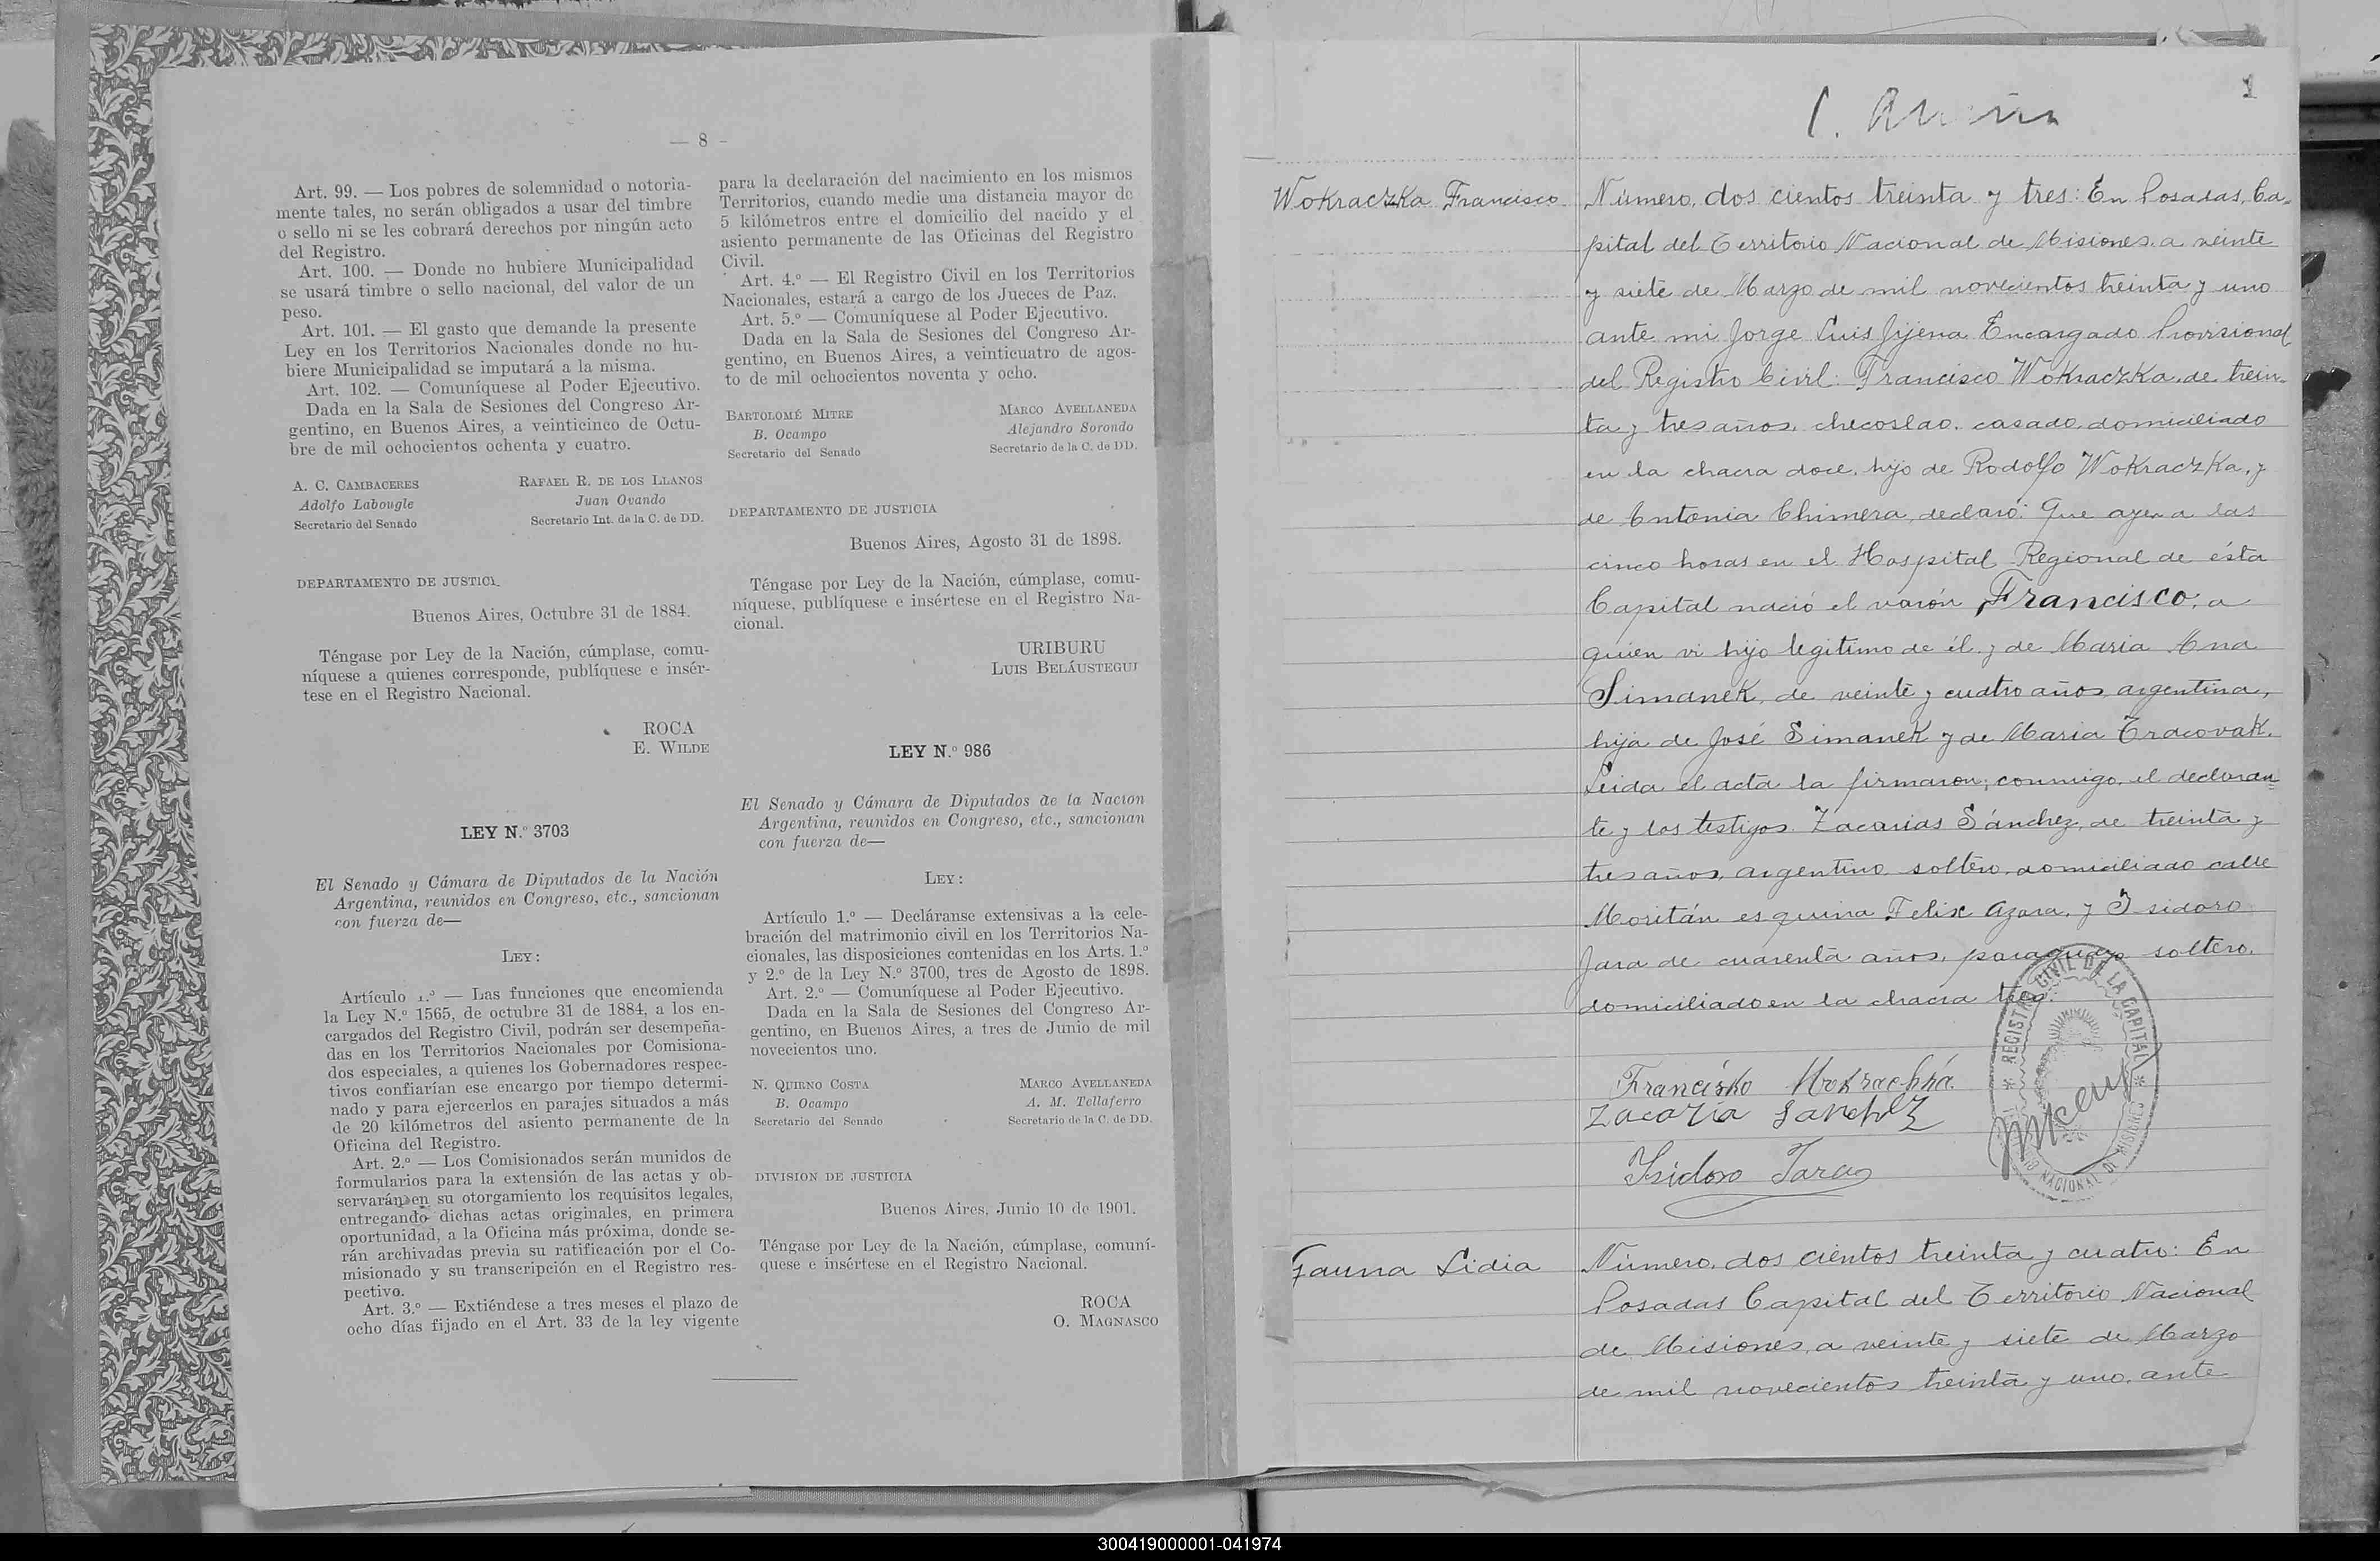 — 8 -
Art. 99. — Los pobres de solemnidad o notoria-
mente tales, no serán obligados a usar del timbre
o sello ni se les cobrará derechos por ningún acto
del Registro.
Art. 100. — Donde no hubiere Municipalidad
se usará timbre o sello nacional, del valor de un
peso.
Art. 101. — El gasto que demande la presente
Ley en los Territorios Nacionales donde no hu-
biere Municipalidad se imputará a la misma.
Art. 102. — Comuníquese al Poder Ejecutivo.
Dada en la Sala de Sesiones del Congreso Ar-
gentino, en Buenos Aires, a veinticinco de Octu-
bre de mil ochocientos ochenta y cuatro.
A. C. CAMBACERES RAFAEL R. DE LOS LLANOS
Adolfo Labougle Juan Ovando
Secretario del Senado Secretario Int. de la C. de DD.
DEPARTAMENTO DE JUSTICI
Buenos Aires, Octubre 31 de 1884.
Téngase por Ley de la Nación, cúmplase, comu-
níquese a quienes corresponde, publíquese e insér-
tese en el Registro Nacional.
ROCA
E. WILDE
LEY N.º 3703
El Senado y Cámara de Diputados de la Nación
Argentina, reunidos en Congreso, etc., sancionan
con fuerza de—
LEY:
Artículo 1.º — Las funciones que encomienda
la Ley N.º 1565, de octubre 31 de 1884, a los en-
cargados del Registro Civil, podrán ser desempeña-
das en los Territorios Nacionales por Comisiona-
dos especiales, a quienes los Gobernadores respec-
tivos confiarían ese encargo por tiempo determi-
nado y para ejercerlos en parajes situados a más
de 20 kilómetros del asiento permanente de la
Oficina del Registro.
Art. 2.º — Los Comisionados serán munidos de
formularios para la extensión de las actas y ob-
servarán en su otorgamiento los requisitos legales,
entregando dichas actas originales, en primera
oportunidad, a la Oficina más próxima, donde se-
rán archivadas previa su ratificación por el Co-
misionado y su transcripción en el Registro res-
pectivo.
Art. 3.º — Extiéndese a tres meses el plazo de
ocho días fijado en el Art. 33 de la ley vigente
para la declaración del nacimiento en los mismos
Territorios, cuando medie una distancia mayor de
5 kilómetros entre el domicilio del nacido y el
asiento permanente de las Oficinas del Registro
Civil.
Art. 4.º — El Registro Civil en los Territorios
Nacionales, estará a cargo de los Jueces de Paz.
Art. 5.º — Comuníquese al Poder Ejecutivo.
Dada en la Sala de Sesiones del Congreso Ar-
gentino, en Buenos Aires, a veinticuatro de agos-
to de mil ochocientos noventa y ocho.
BARTOLOMÉ MITRE MARCO AVELLANEDA
B. Ocampo Alejandro Sorondo
Secretario del Senado Secretario de la C. de DD.
DEPARTAMENTO DE JUSTICIA
Buenos Aires, Agosto 31 de 1898.
Téngase por Ley de la Nación, cúmplase, comu-
níquese, publíquese e insértese en el Registro Na-
cional.
URIBURU
LUIS BELÁUSTEGUI
LEY N.º 986
El Senado y Cámara de Diputados de la Nación
Argentina, reunidos en Congreso, etc., sancionan
con fuerza de—
LEY:
Artículo 1.º — Decláranse extensivas a la cele-
bración del matrimonio civil en los Territorios Na-
cionales, las disposiciones contenidas en los Arts. 1.º
y 2.º de la Ley N.º 3700, tres de Agosto de 1898.
Art. 2.º — Comuníquese al Poder Ejecutivo.
Dada en la Sala de Sesiones del Congreso Ar-
gentino, en Buenos Aires, a tres de Junio de mil
novecientos uno.
N. QUIRNO COSTA MARCO AVELLANEDA
B. Ocampo A. M. Tallaferro
Secretario del Senado Secretario de la C. de DD.
DIVISION DE JUSTICIA
Buenos Aires, Junio 10 de 1901.
Téngase por Ley de la Nación, cúmplase, comuní-
quese e insértese en el Registro Nacional.
ROCA
O. MAGNASCO
1
Wokraczka Francisco
Número, dos cientos treinta y tres: En Posadas, Ca-
pital del Territorio Nacional de Misiones a veinte
y siete de Marzo de mil novecientos treinta y uno
ante mi Jorge Luis Jijena Encargado Provisional
del Registro Civil: Francisco Wokraczka, de trein-
ta y tres años, checoslao, casado, domiciliado
en la chacra doce, hijo de Rodolfo Wokraczka, y
de Antonia Chimera, declaró: Que ayer a las
cinco horas en el Hospital Regional de ésta
Capital nació el varón Francisco, a
quien vi hijo legitimo de él y de Maria Ana
Simanek, de veinte y cuatro años, argentina,
hija de José Simanek y de Maria Tracovak.
Leida el acta la firmaron, conmigo, el declaran
te y los testigos Zacarias Sánchez, de treinta y
tres años, argentino, soltero, domiciliado calle
Moritán esquina Felix Azara, y Isidoro
Jara de cuarenta años, paraguayo soltero,
domiciliado en la chacra tres.
REGISTRO CIVIL DE LA CAPITAL
NACIONAL DE MISIONES
Francisko Wokrachka
Zacaria Sanchez
Isidoro Jara
Gauna Lidia
Número, dos cientos treinta y cuatro: En
Posadas Capital del Territorio Nacional
de Misiones, a veinte y siete de Marzo
de mil novecientos treinta y uno, ante
300419000001-041974